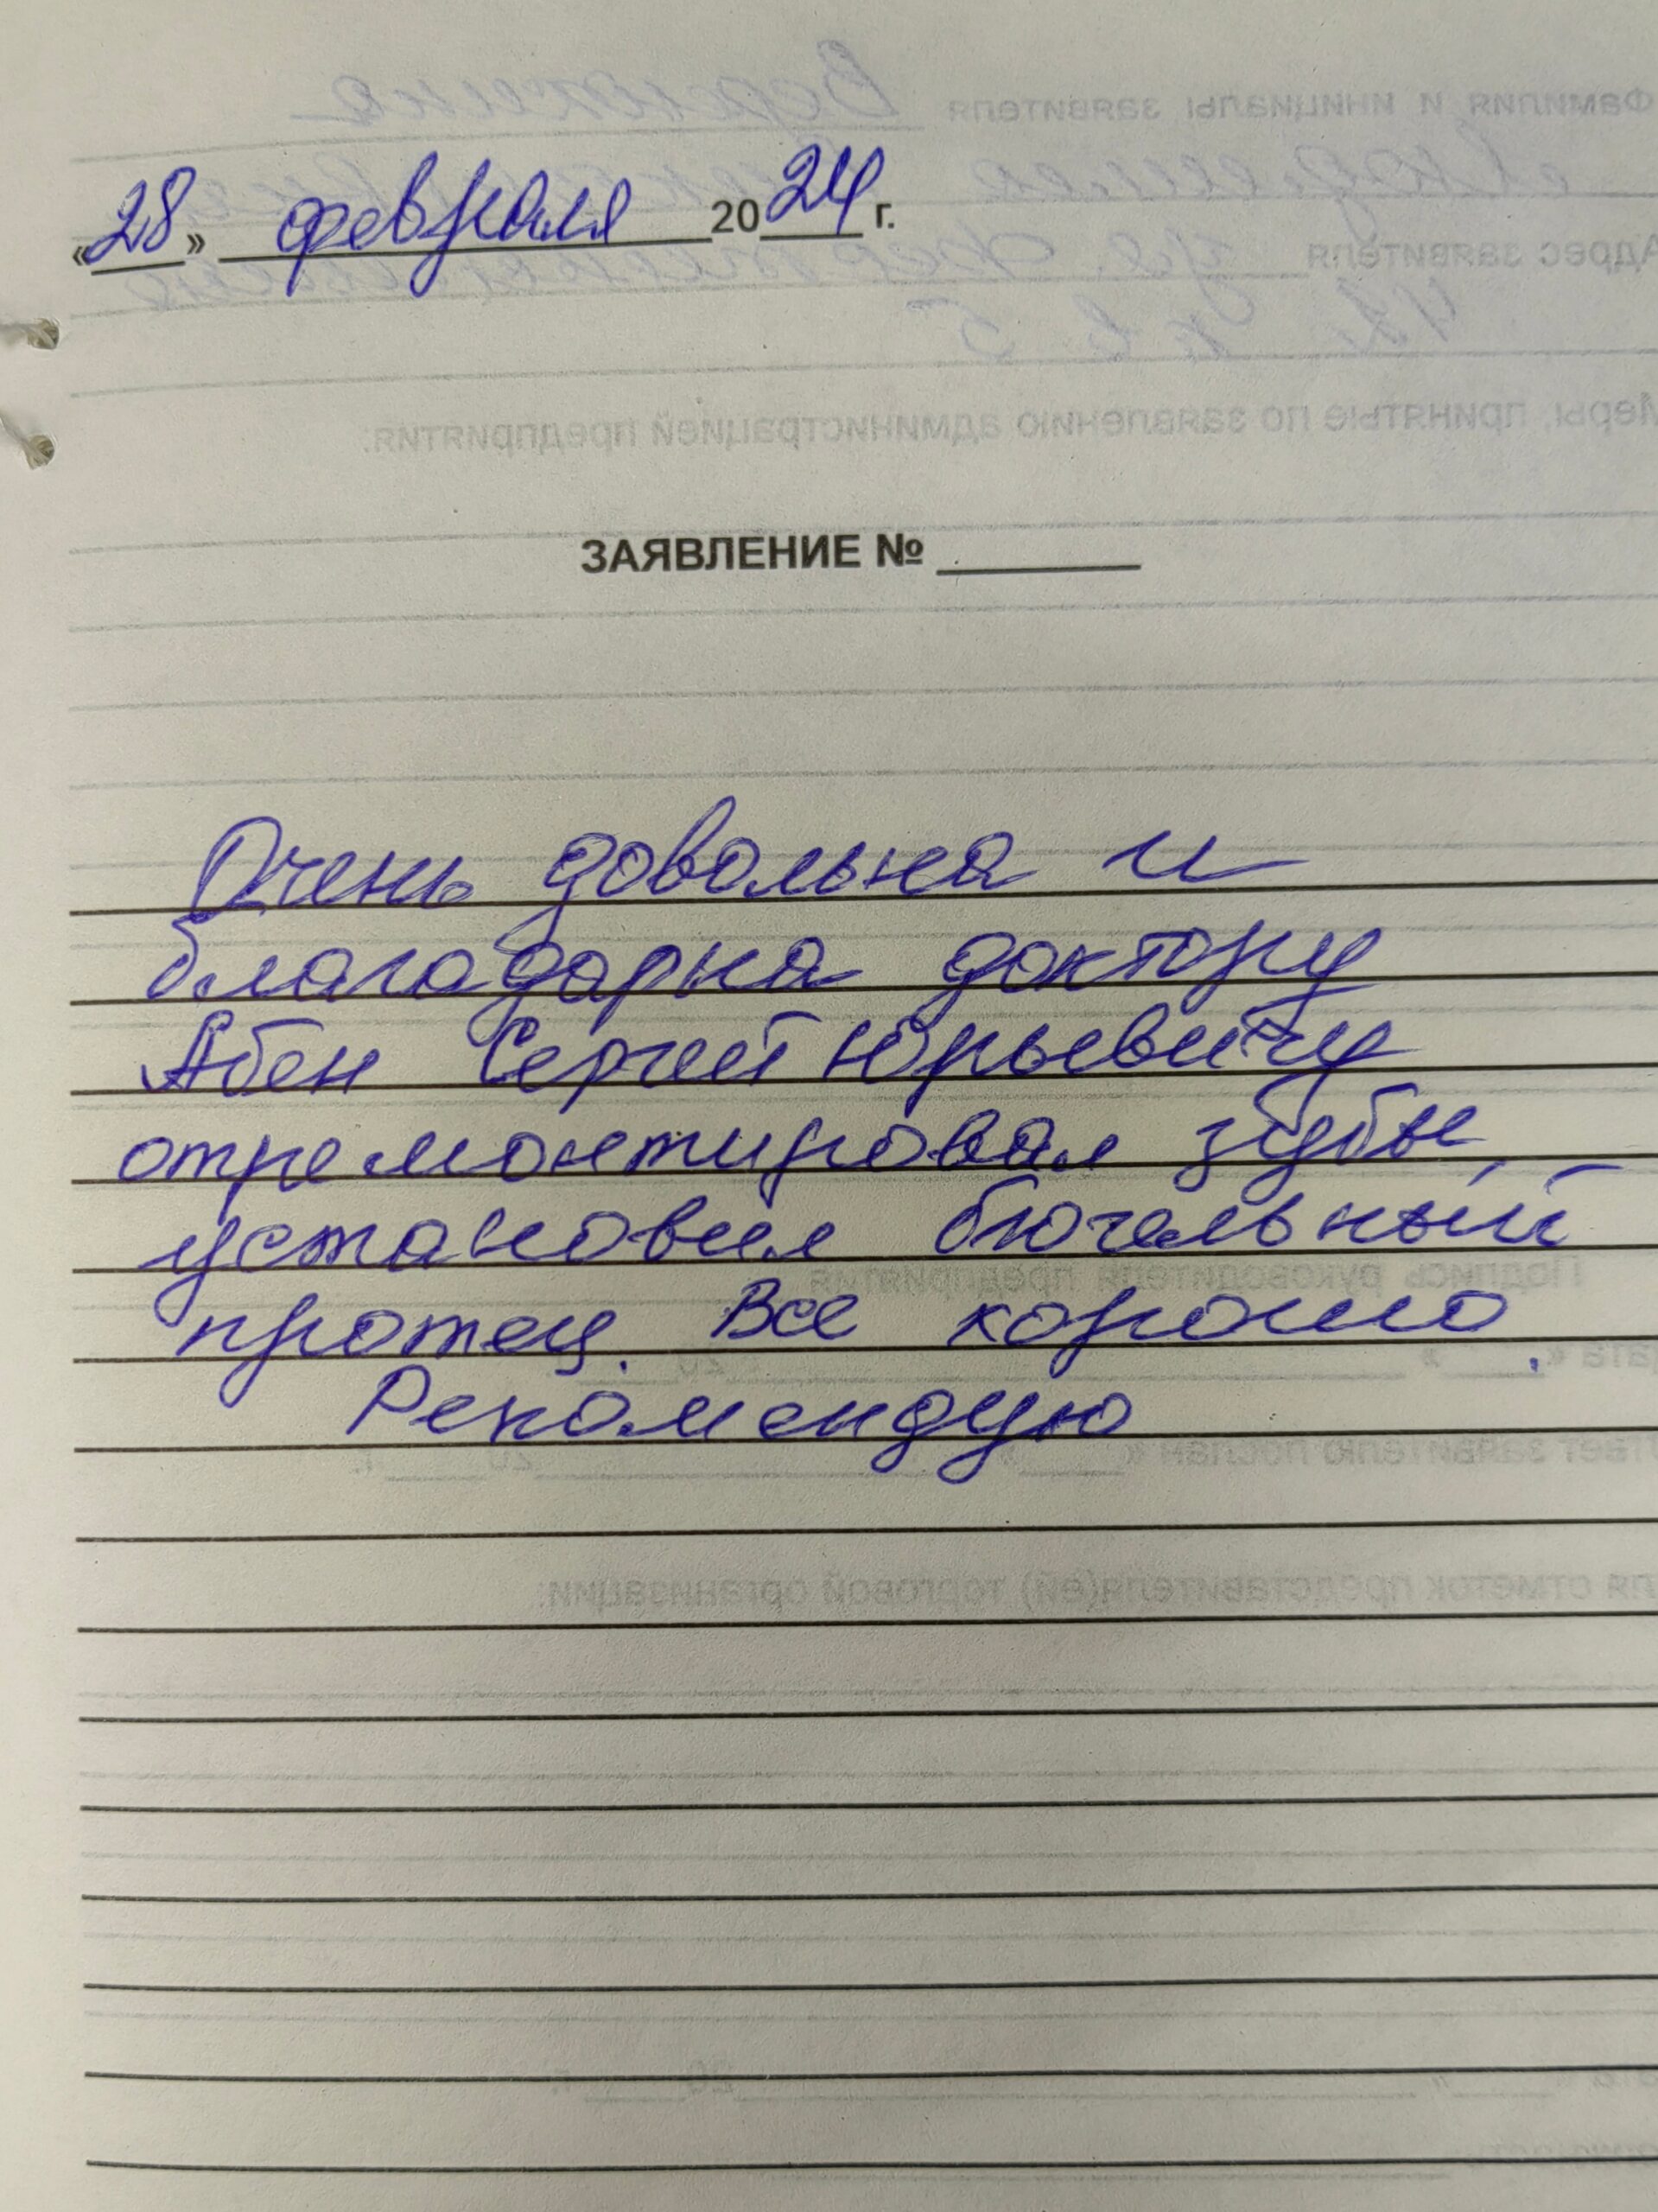 «28» февраля 2024 г.
ЗАЯВЛЕНИЕ № ______
Очень довольна и
благодарна доктору
Абен Сергей Юрьевичу
отремонтировал зубы,
установил бюгельный
протез. Все хорошо.
Рекомендую